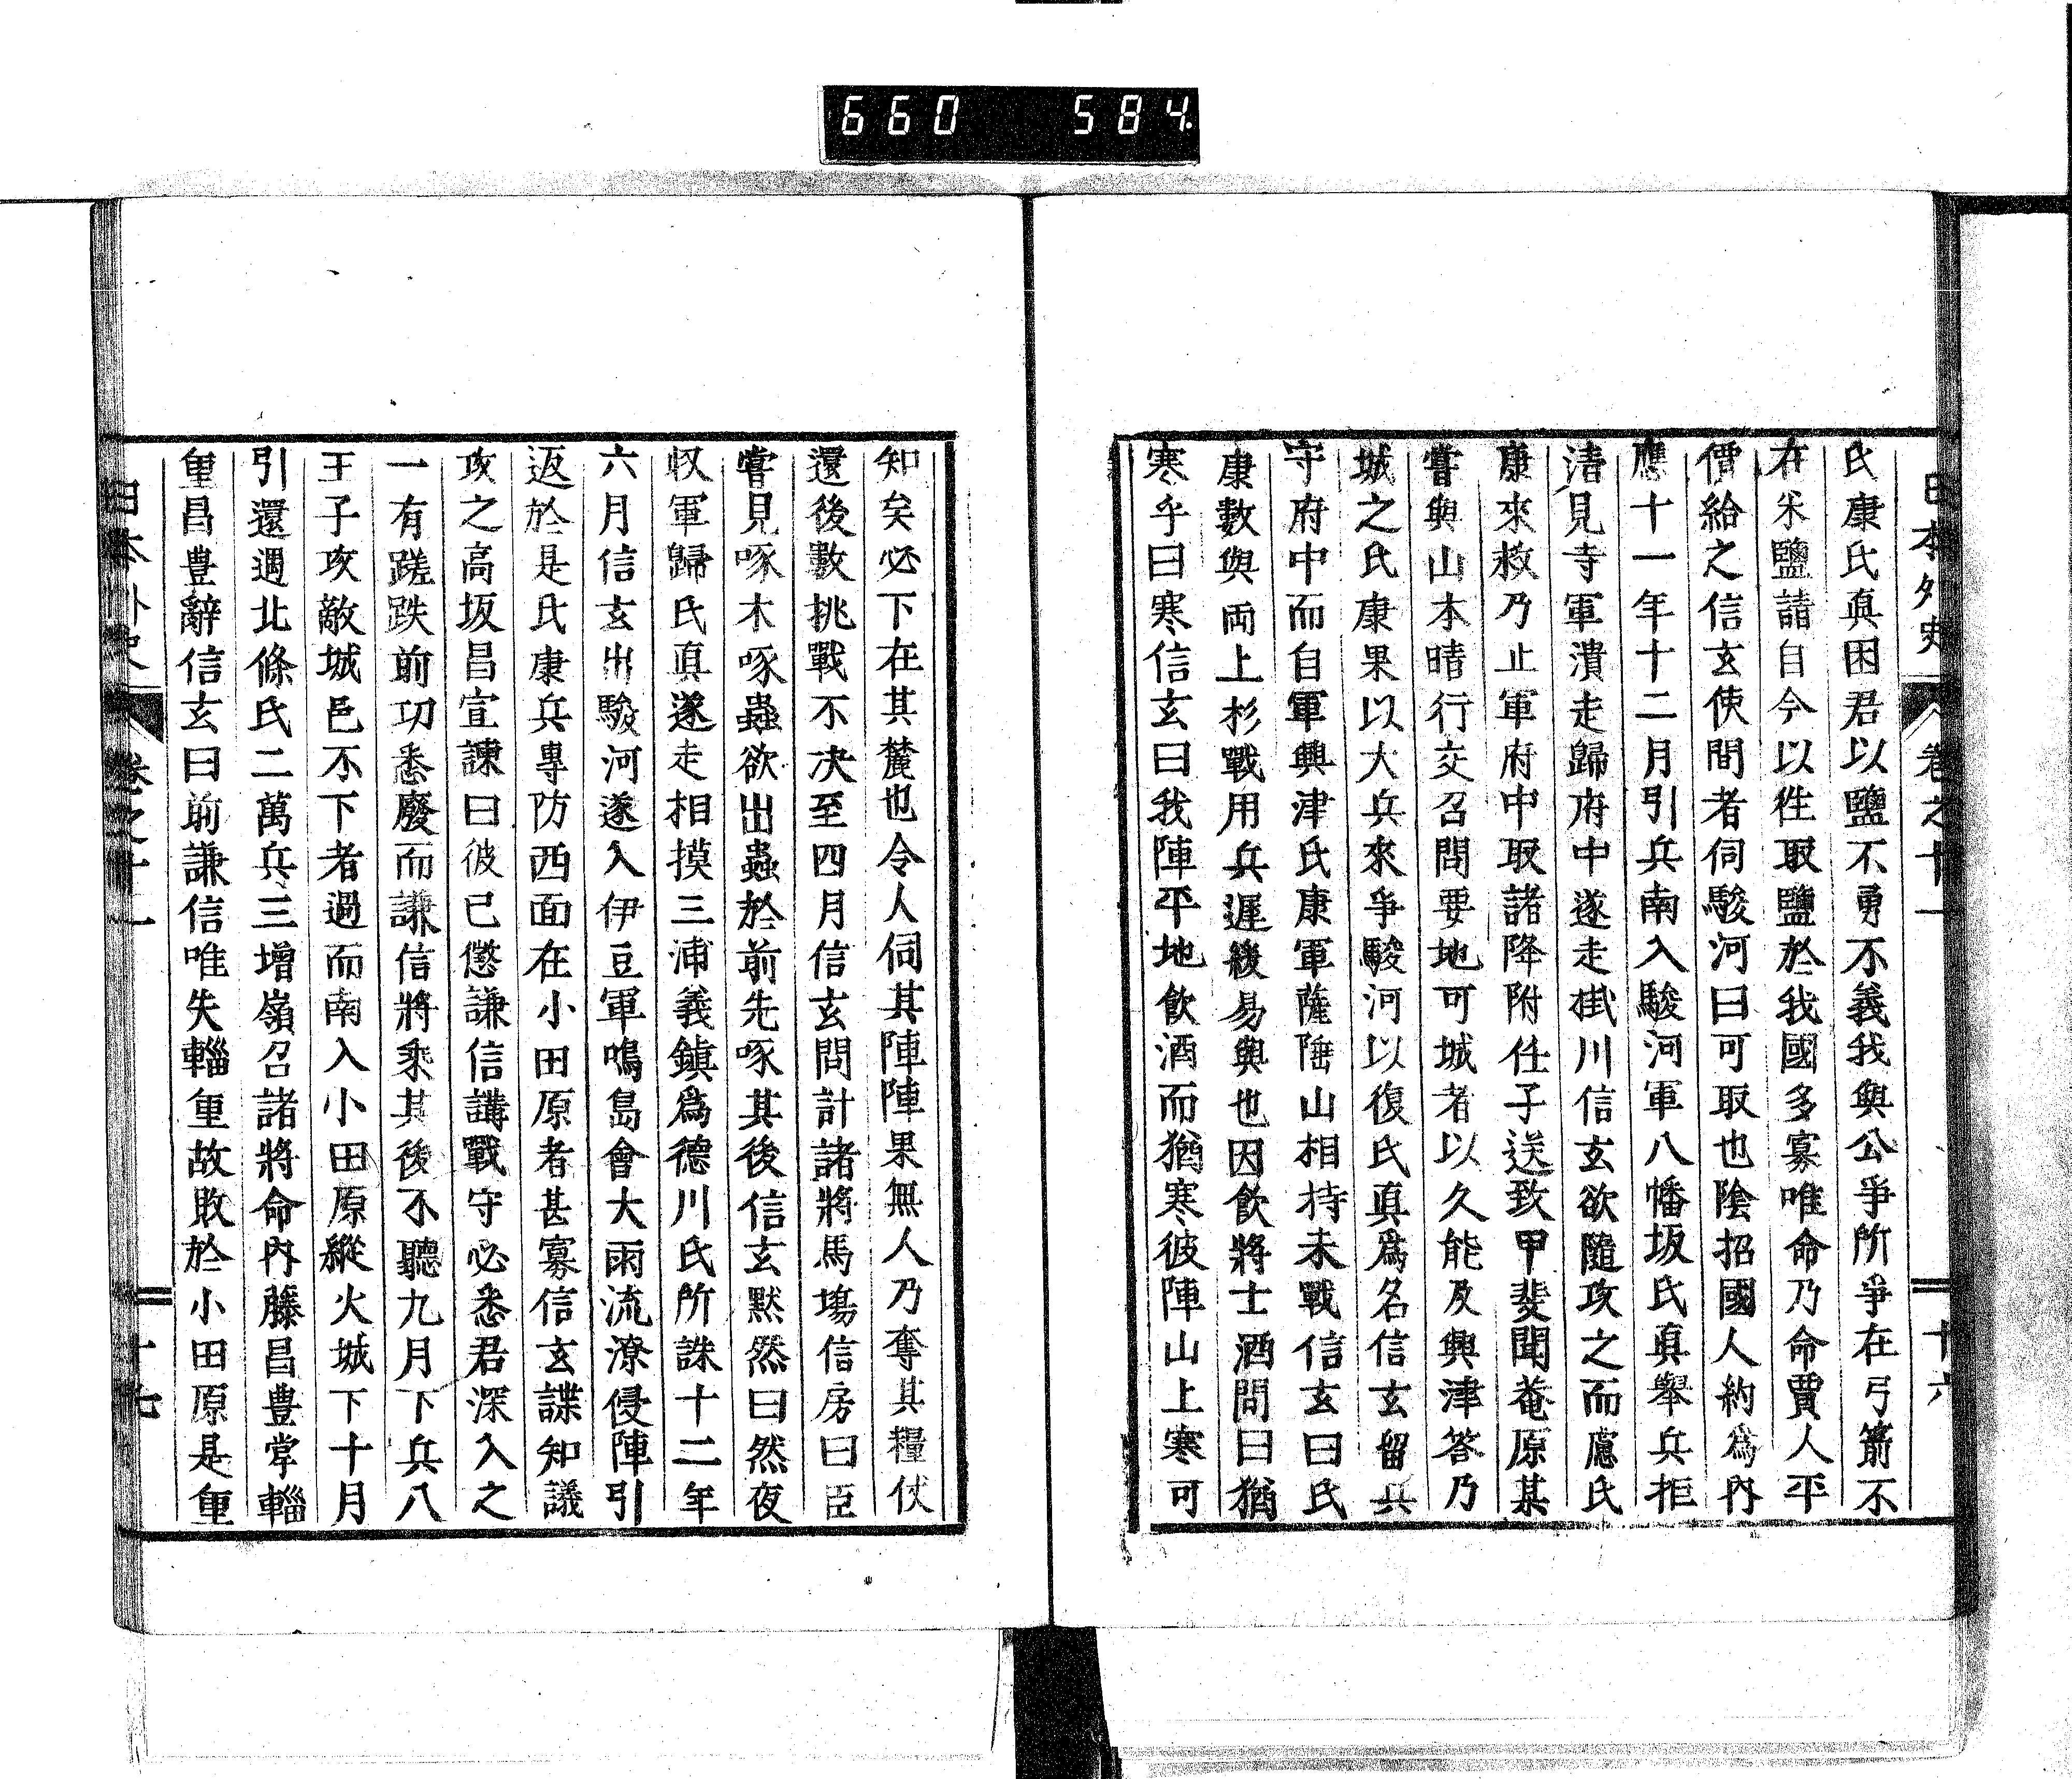 660 584
日本外史 卷之十一 十六
氏康氏真困君以鹽不勇不義我與公爭所爭在弓箭不
在米鹽請自今以徃取鹽於我國多寡唯命乃命賈人平
價給之信玄使間者伺駿河曰可取也陰招國人約爲內
應十一年十二月引兵南入駿河軍八幡坂氏真舉兵拒
淸見寺軍潰走歸府中遂走掛川信玄欲隨攻之而慮氏
康來救乃止軍府中取諸降附任子送致甲斐聞菴原某
嘗與山本晴行交召問要地可城者以久能及興津答乃
城之氏康果以大兵來爭駿河以復氏真爲名信玄留兵
守府中而自軍興津氏康軍薩陲山相持未戰信玄曰氏
康數與両上杉戰用兵遲緩易與也因飮將士酒問曰猶
寒乎曰寒信玄曰我陣平地飮酒而猶寒彼陣山上寒可
知矣必下在其麓也令人伺其陣陣果無人乃奪其糧仗
還後數挑戰不决至四月信玄問計諸將馬塲信房曰臣
嘗見啄木啄蟲欲出蟲於前先啄其後信玄默然曰然夜
収軍歸氏真遂走相摸三浦義鎭爲德川氏所誅十二年
六月信玄出駿河遂入伊豆軍鳴島會大雨流潦侵陣引
返於是氏康兵專防西面在小田原者甚寡信玄諜知議
攻之高坂昌宣諫曰彼已懲謙信講戰守必悉君深入之
一有蹉跌前功悉廢而謙信將乘其後不聽九月下兵八
王子攻敵城邑不下者過而南入小田原縱火城下十月
引還遇北條氏二萬兵三增嶺召諸將命內藤昌豊掌輜
重昌豊辭信玄曰前謙信唯失輜重故敗於小田原是重
日本外史 卷之十一 十七